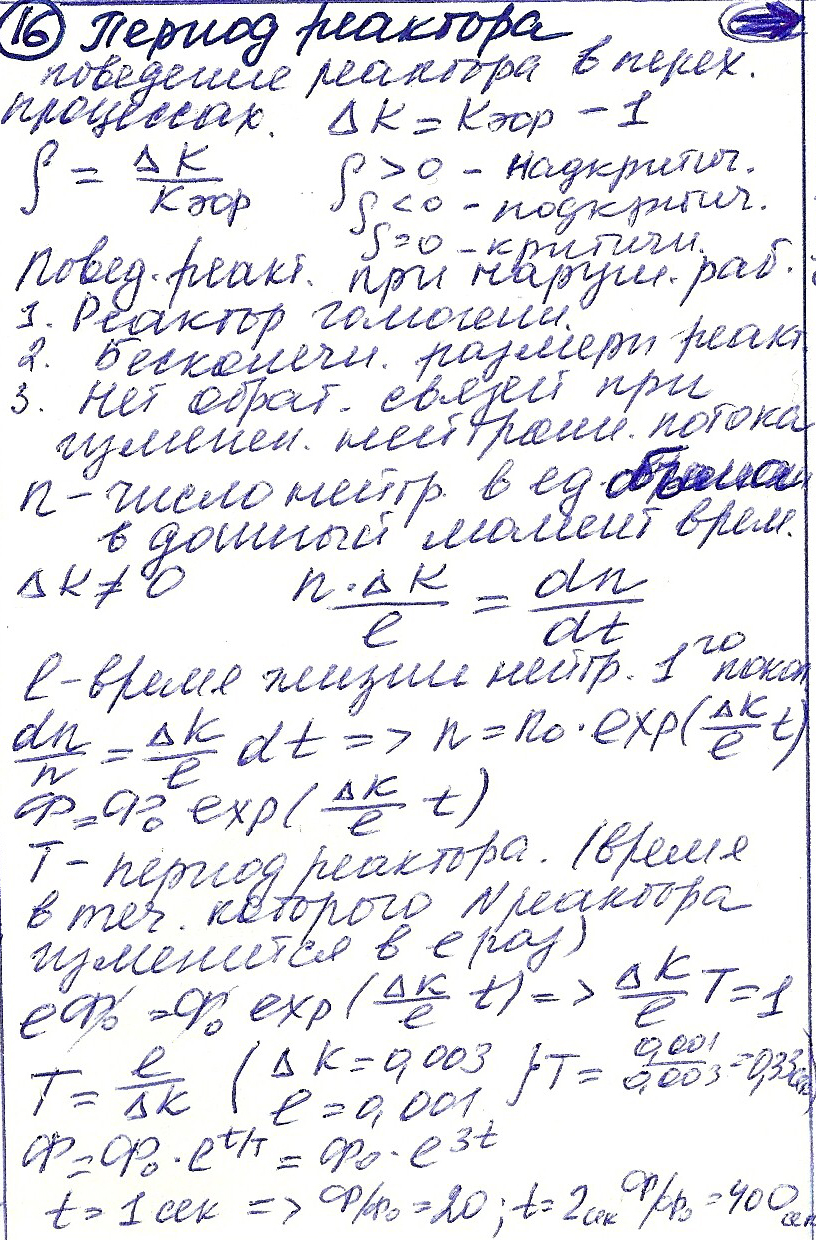 16 Период реактора
поведение реактора в перех.
процессах. ΔK = Kэфр − 1
ρ = ΔK/Kэфр ρ > 0 – надкритич.
ρ < 0 – подкритич.
ρ = 0 – критичн.
Повед. реакт. при наруш. раб.
1. Реактор гомогенн.
2. Бесконечн. размеры реакт
3. Нет обрат. связей при
изменен. нейтронн. потока
n – число нейтр. в ед объема
в данный момент врем.
ΔK ≠ 0 n·ΔK/l = dn/dt
l – время жизни нейтр. 1го покол
dn/n = ΔK/l dt => n = n₀·exp(ΔK/l t)
Ф = Ф₀ exp(ΔK/l t)
T – период реактора. (время
в теч. которого N реактора
изменится в e раз)
eФ₀ = Ф₀ exp(ΔK/l t) => ΔK/l T = 1
T = l/ΔK ( ΔK = 0,003 l = 0,001 } T = 0,001/0,003 = 0,33 сек)
Ф = Ф₀·e^t/T = Ф₀·e^3t
t = 1 сек => Ф/Ф₀ = 20; t = 2сек Ф/Ф₀ = 400 сек